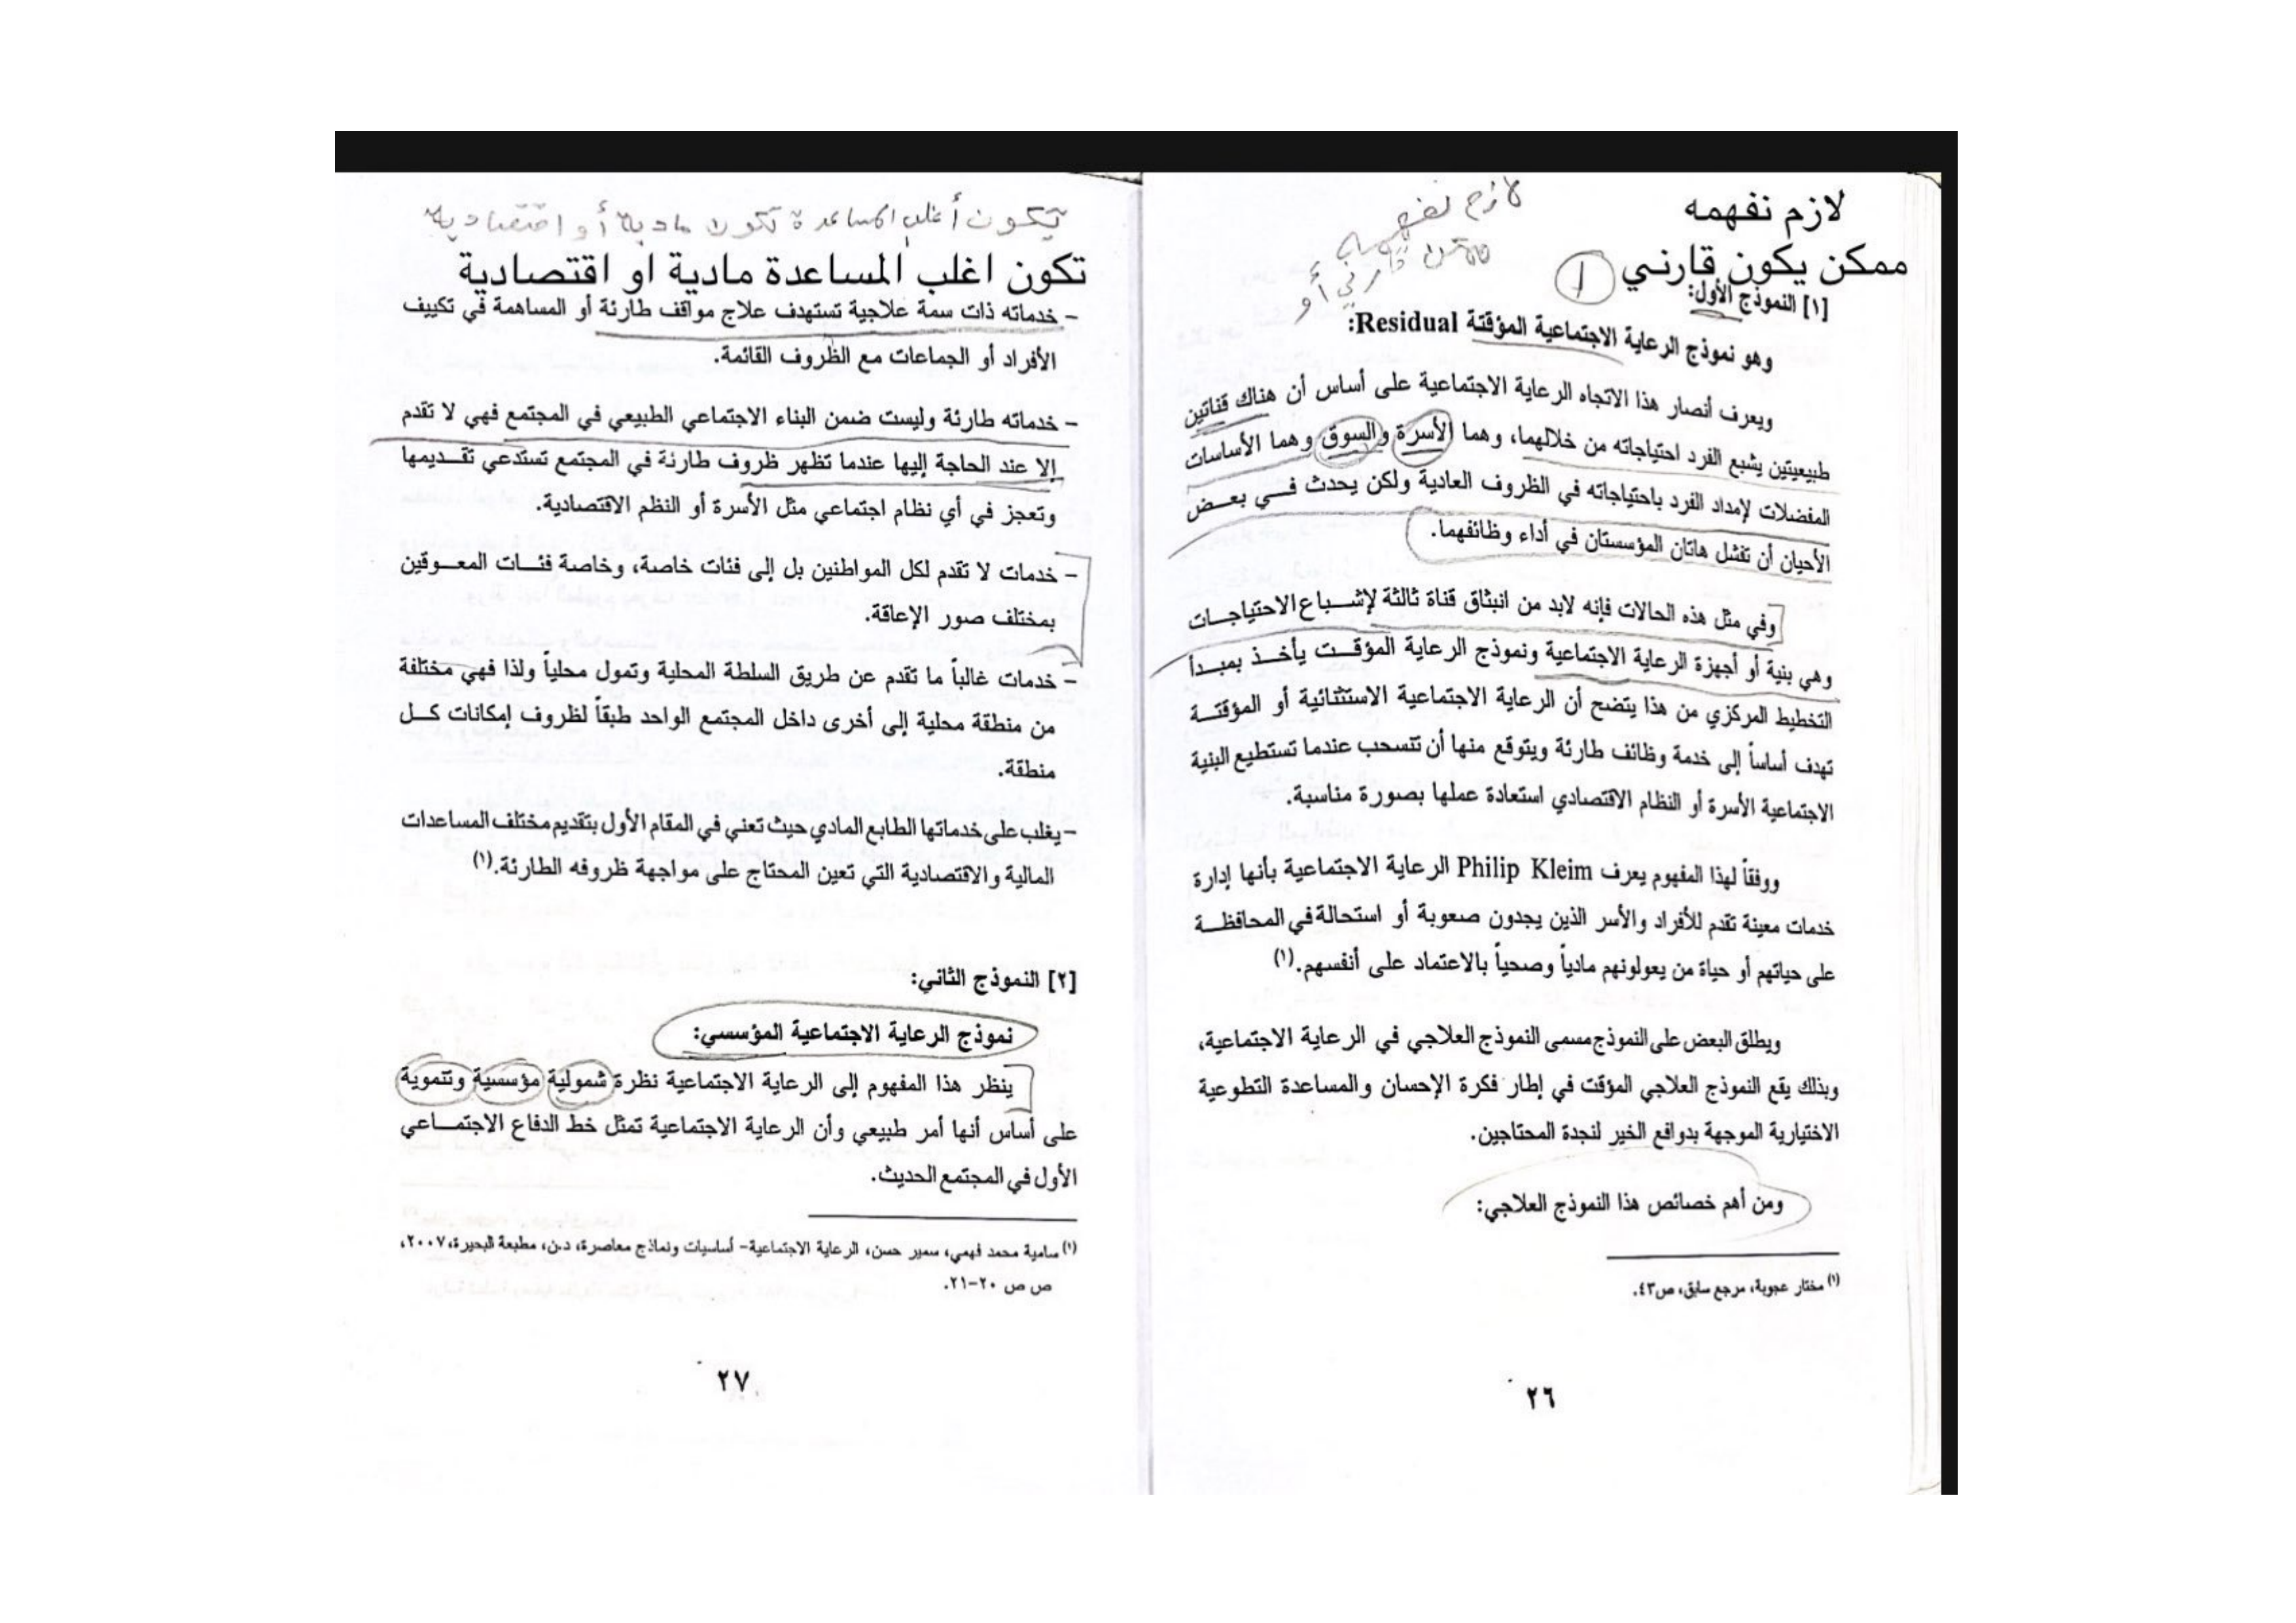 لازم نفهمه
ممكن يكون قارني
لازم نفهمه
ممكن قارني أو
1
[١] النموذج الأول:
وهو نموذج الرعاية الاجتماعية المؤقتة Residual:
ويعرف أنصار هذا الاتجاه الرعاية الاجتماعية على أساس أن هناك قناتين
طبيعيتين يشبع الفرد احتياجاته من خلالهما، وهما الأسرة والسوق وهما الأساسات
المفضلات لإمداد الفرد باحتياجاته في الظروف العادية ولكن يحدث في بعض
الأحيان أن تفشل هاتان المؤسستان في أداء وظائفهما.
وفي مثل هذه الحالات فإنه لابد من انبثاق قناة ثالثة لإشباع الاحتياجات
وهي بنية أو أجهزة الرعاية الاجتماعية ونموذج الرعاية المؤقت يأخذ بمبدأ
التخطيط المركزي من هذا يتضح أن الرعاية الاجتماعية الاستثنائية أو المؤقتة
تهدف أساساً إلى خدمة وظائف طارئة ويتوقع منها أن تنسحب عندما تستطيع البنية
الاجتماعية الأسرة أو النظام الاقتصادي استعادة عملها بصورة مناسبة.
ووفقاً لهذا المفهوم يعرف Philip Kleim الرعاية الاجتماعية بأنها إدارة
خدمات معينة تقدم للأفراد والأسر الذين يجدون صعوبة أو استحالة في المحافظة
على حياتهم أو حياة من يعولونهم مادياً وصحياً بالاعتماد على أنفسهم.(١)
ويطلق البعض على النموذج مسمى النموذج العلاجي في الرعاية الاجتماعية،
وبذلك يقع النموذج العلاجي المؤقت في إطار فكرة الإحسان والمساعدة التطوعية
الاختيارية الموجهة بدوافع الخير لنجدة المحتاجين.
ومن أهم خصائص هذا النموذج العلاجي:
(١) مختار عجوبة، مرجع سابق، ص٤٣.
٢٦
يكون أغلب المساعدة تكون مادية أو اقتصادية
تكون اغلب المساعدة مادية او اقتصادية
- خدماته ذات سمة علاجية تستهدف علاج مواقف طارئة أو المساهمة في تكييف
الأفراد أو الجماعات مع الظروف القائمة.
- خدماته طارئة وليست ضمن البناء الاجتماعي الطبيعي في المجتمع فهي لا تقدم
إلا عند الحاجة إليها عندما تظهر ظروف طارئة في المجتمع تستدعي تقديمها
وتعجز في أي نظام اجتماعي مثل الأسرة أو النظم الاقتصادية.
- خدمات لا تقدم لكل المواطنين بل إلى فئات خاصة، وخاصة فئات المعوقين
بمختلف صور الإعاقة.
- خدمات غالباً ما تقدم عن طريق السلطة المحلية وتمول محلياً ولذا فهي مختلفة
من منطقة محلية إلى أخرى داخل المجتمع الواحد طبقاً لظروف إمكانات كل
منطقة.
- يغلب على خدماتها الطابع المادي حيث تعني في المقام الأول بتقديم مختلف المساعدات
المالية والاقتصادية التي تعين المحتاج على مواجهة ظروفه الطارئة.(١)
[٢] النموذج الثاني:
نموذج الرعاية الاجتماعية المؤسسي:
ينظر هذا المفهوم إلى الرعاية الاجتماعية نظرة شمولية مؤسسية وتنموية
على أساس أنها أمر طبيعي وأن الرعاية الاجتماعية تمثل خط الدفاع الاجتماعي
الأول في المجتمع الحديث.
(١) سامية محمد فهمي، سمير حسن، الرعاية الاجتماعية- أساسيات ونماذج معاصرة، د.ن، مطبعة البحيرة، ٢٠٠٧،
ص ص ٢٠-٢١.
٢٧